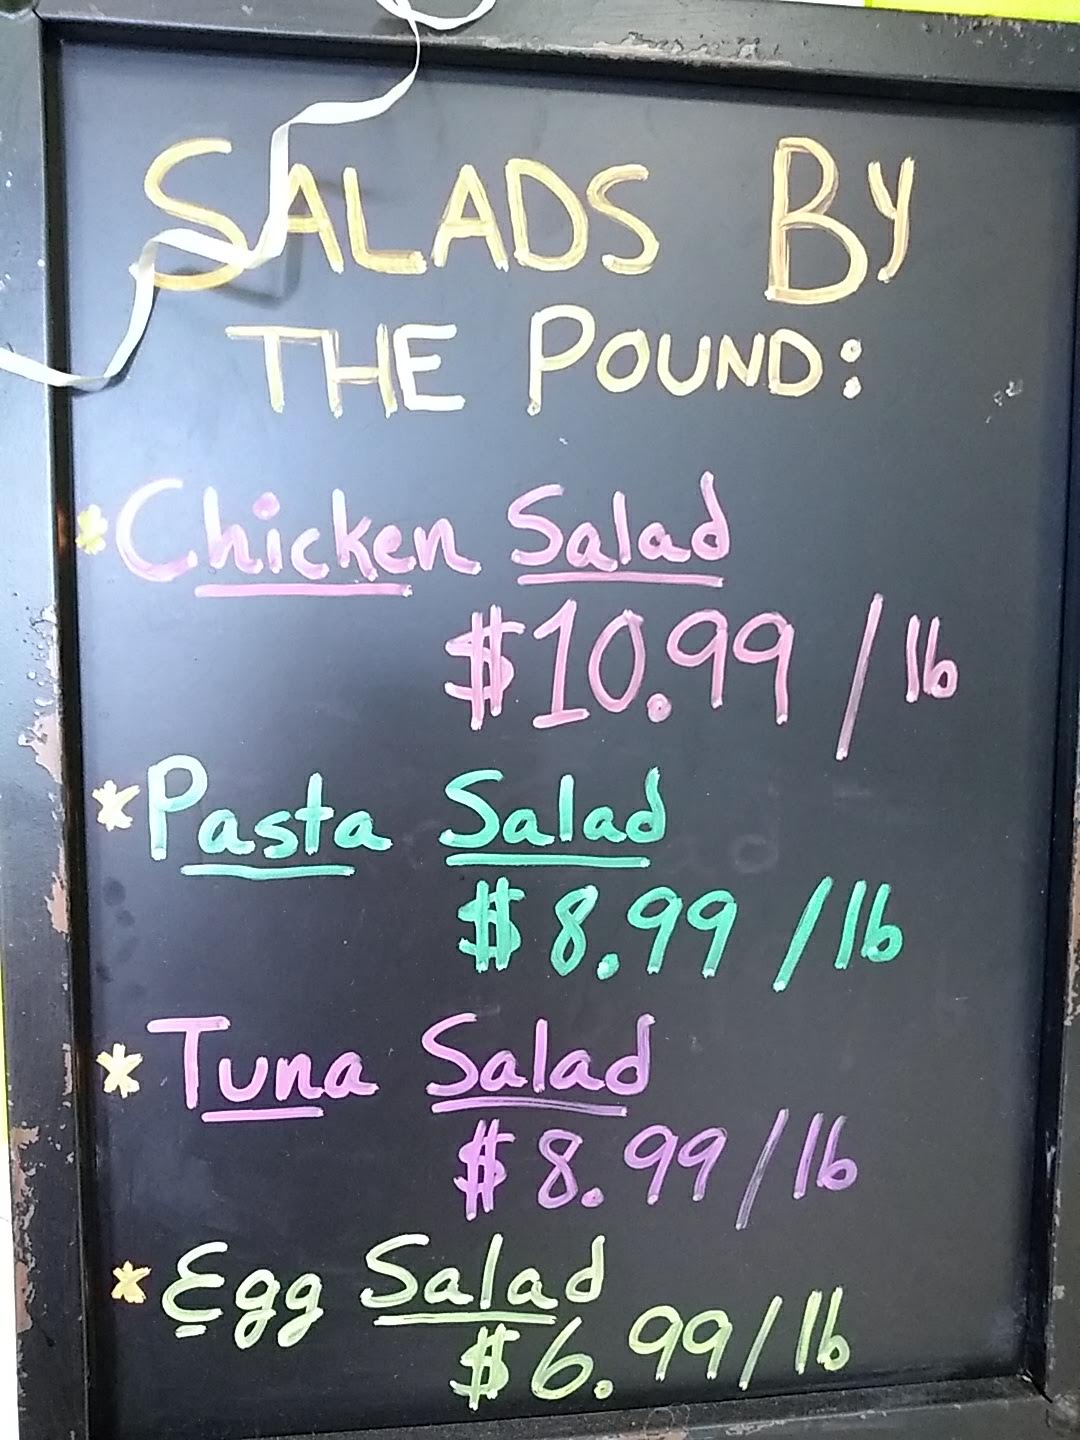 SALADS BY
THE POUND:
*Chicken Salad
$10.99/lb
*Pasta Salad
$8.99/lb
*Tuna Salad
$8.99/lb
*Egg Salad
$6.99/lb